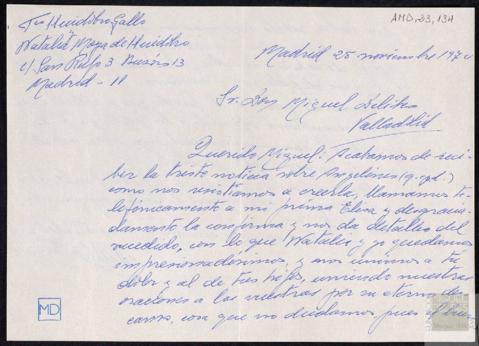 AMD, 33, 134
Fco Huidobro Gallo
Natalia Moya de Huidobro
c/ San Rufo 3 Buzón 13
Madrid - 11
Madrid 25 noviembre 1974
Sr. Don Miguel Delibes
Valladolid
Querido Miguel: Acabamos de reci-
bir la triste noticia sobre Angelines (q.e.p.d.)
como nos resistíamos a creerla, llamamos te-
lefónicamente a mi prima Elisa y desgracia-
damente la confirma y nos da detalles del
sucedido, con lo que Natalia y yo quedamos
impresionadísimos, y nos unimos a tu
dolor y al de tus hijos, uniendo nuestras
oraciones a las vuestras por su eterno des-
canso, con que no dudamos, pues
MD